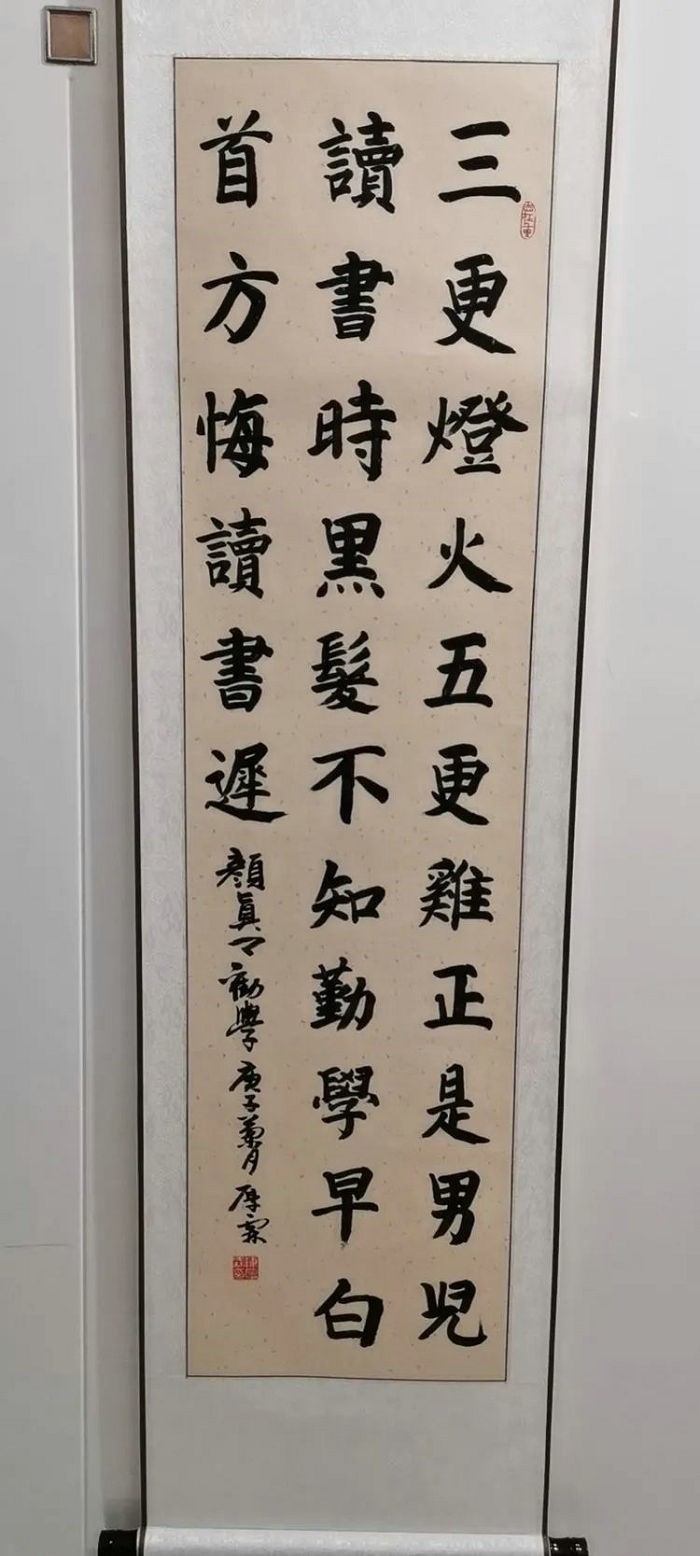 三更燈火五更雞正是男兒
讀書時黑髮不知勤學早白
首方悔讀書遲
顏真 勸學 庚子 月 厚霖